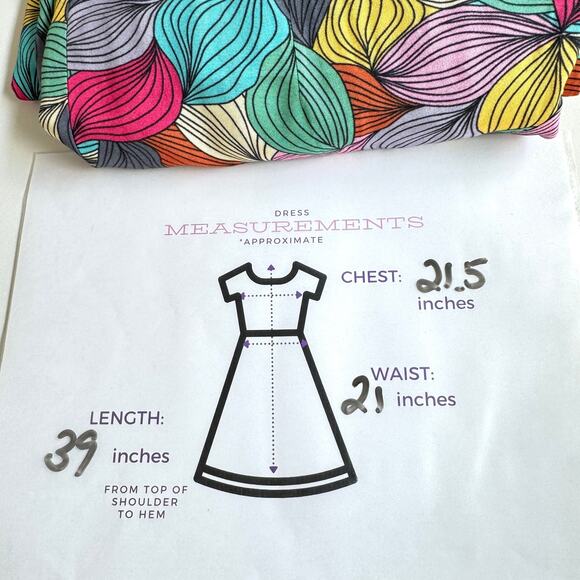 DRESS
MEASUREMENTS
*APPROXIMATE
CHEST: 21.5
inches
WAIST:
21 inches
LENGTH:
39 inches
FROM TOP OF
SHOULDER
TO HEM